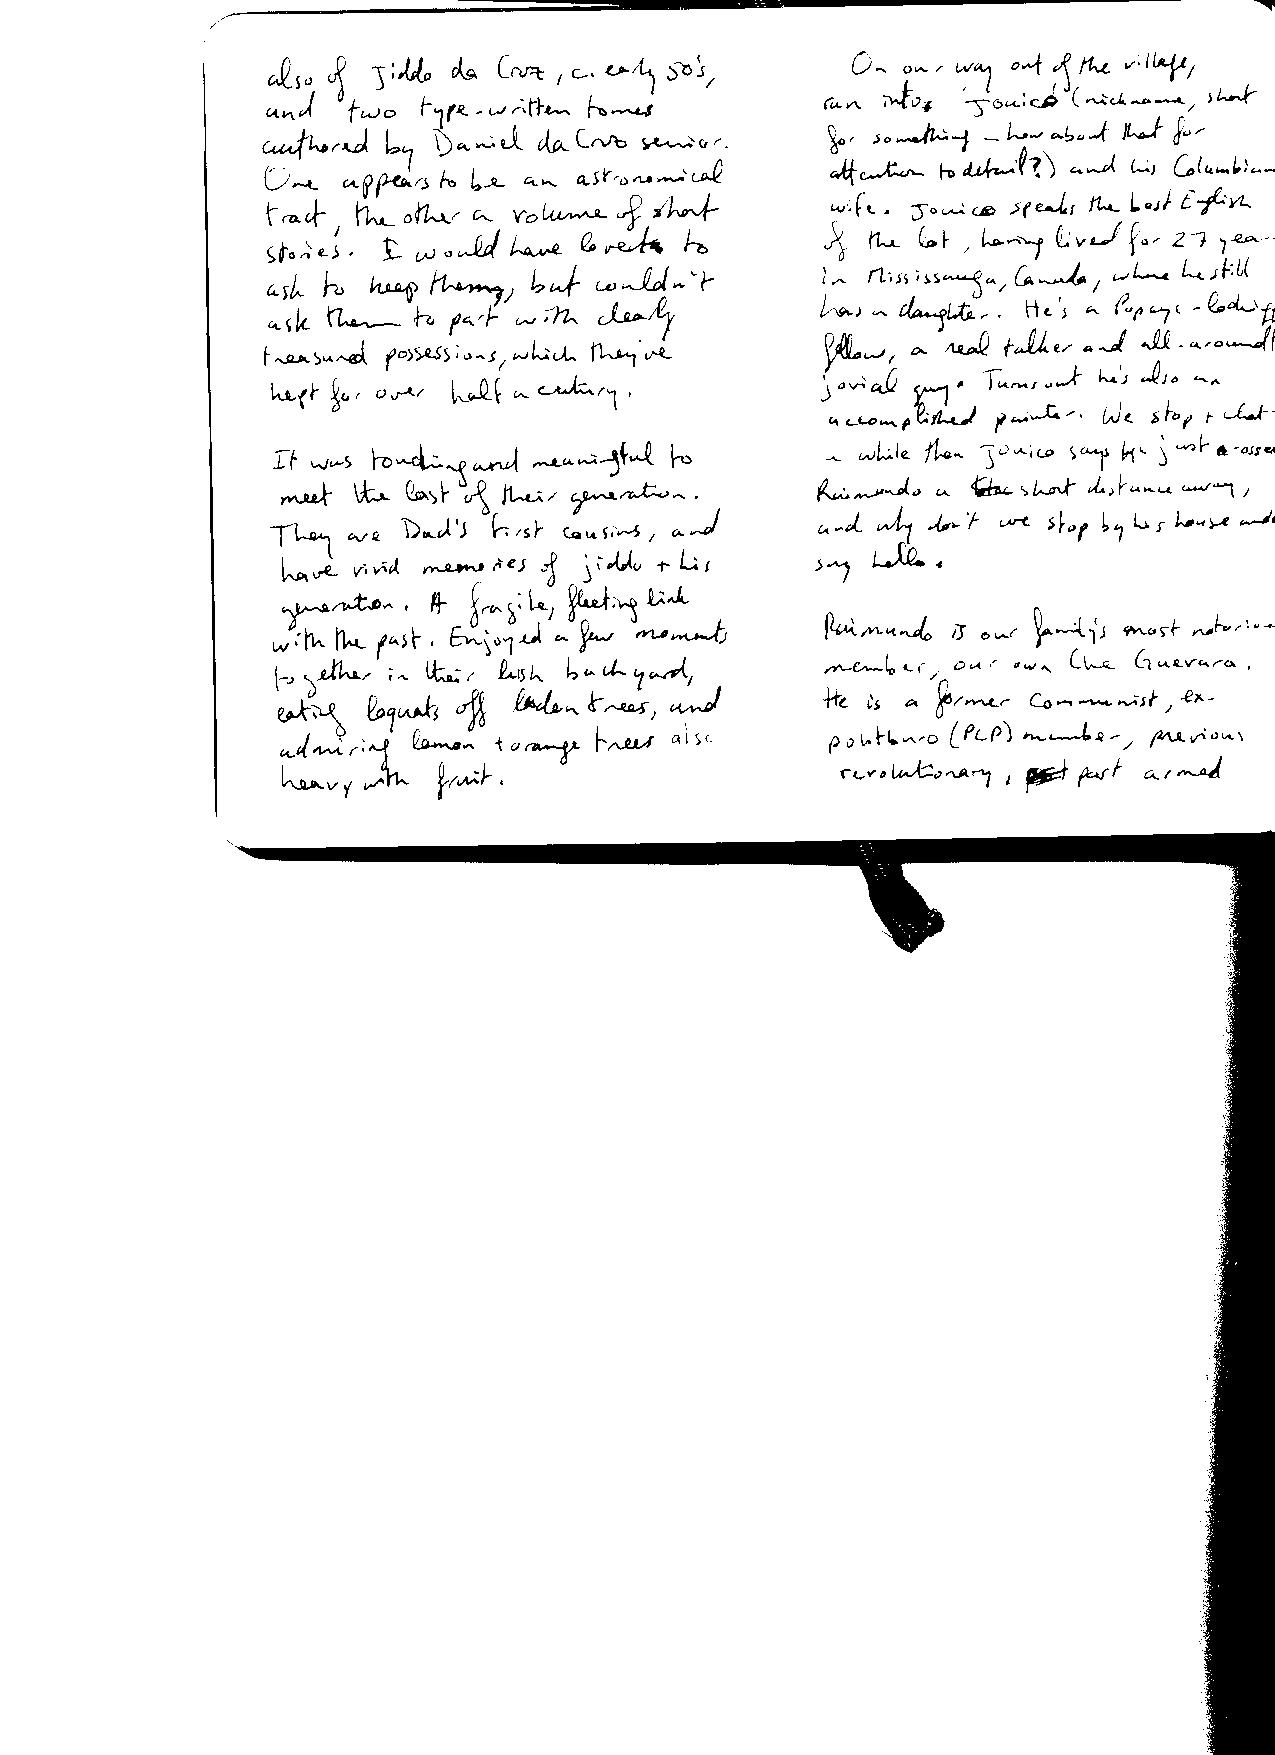 also of Jiddo da Cruz, c. early 50's,
and two type-written tomes
authored by Daniel da Cruz senior.
One appears to be an astronomical
tract, the other a volume of short
stories. I would have loved to
ask to keep them, but couldn't
ask them to part with clearly
treasured possessions, which they've
kept for over half a century.
It was touching and meaningful to
meet the last of their generation.
They are Dad's first cousins, and
have vivid memories of jiddo + his
generation. A fragile, fleeting link
with the past. Enjoyed a few moments
together in their lush backyard,
eating loquats off laden trees, and
admiring lemon + orange trees also
heavy with fruit.
On our way out of the village,
ran into Jouico (nickname, short
for something - how about that for
attention to detail?) and his Columbian
wife. Jouico speaks the best English
of the lot, having lived for 27 year
in Mississauga, Canada, where he still
has a daughter. He's a Popeye-looking
fellow, a real talker and all-around
jovial guy. Turns out he's also an
accomplished painter. We stop + chat
a while then Jouico says he just
Raimundo a short distance away,
and why don't we stop by his house and
say hello.
Raimundo is our family's most
member, our own Che Guevara.
He is a former Communist, ex-
politburo (PCP) member, previous
revolutionary, past armed